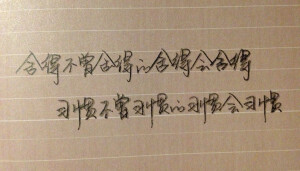 舍得不曾舍得的舍得会舍得
习惯不曾习惯的习惯会习惯